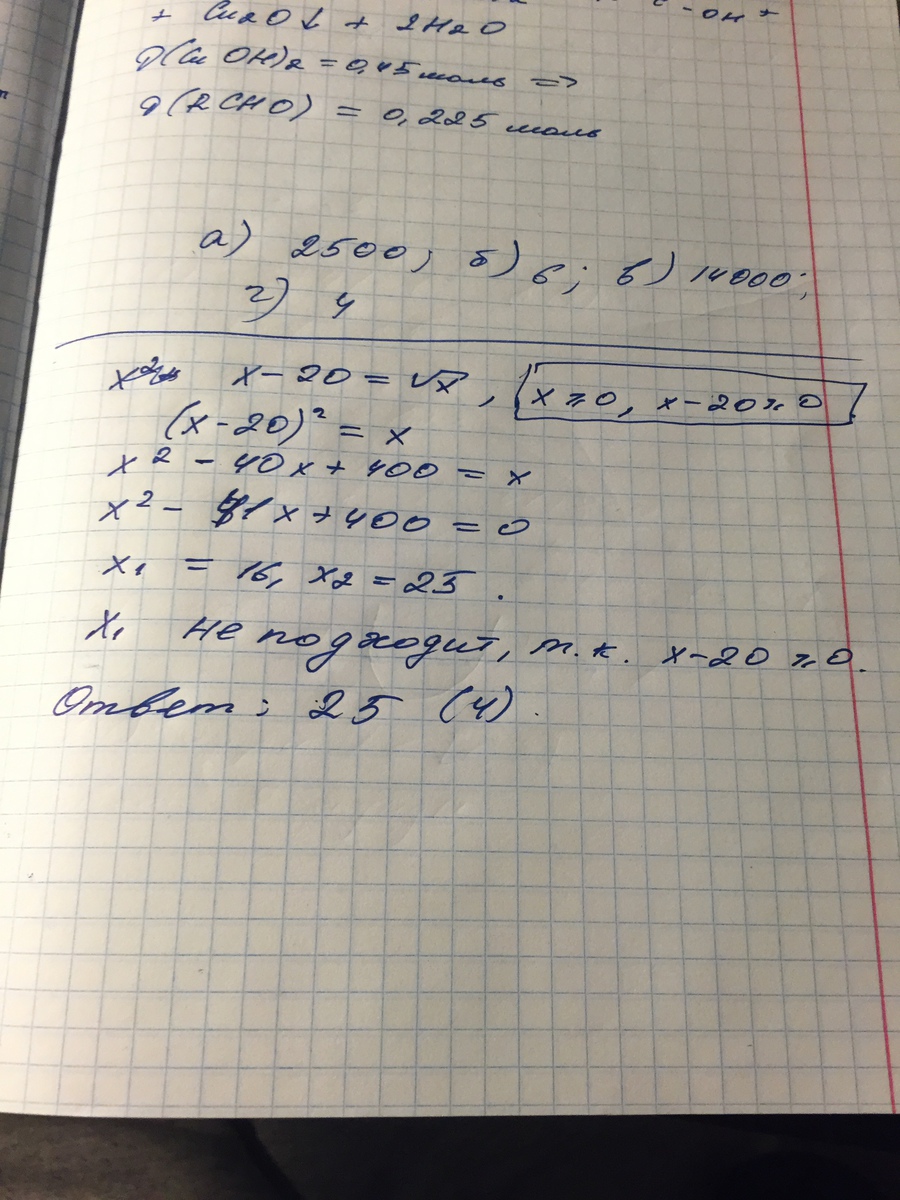 -OH +
+ Cu2O↓ + 2H2O
(Cu OH)2 = 0,45 моль =>
(RCHO) = 0,225 моль
а) 2500; б) 6; в) 14000;
г) 4
x - 20 = √x, x ≥ 0, x - 20 ≥ 0
(x - 20)² = x
x² - 40x + 400 = x
x² - 41x + 400 = 0
x₁ = 16, x₂ = 25.
x₁ не подходит, т.к. x - 20 ≥ 0.
Ответ: 25 (4).